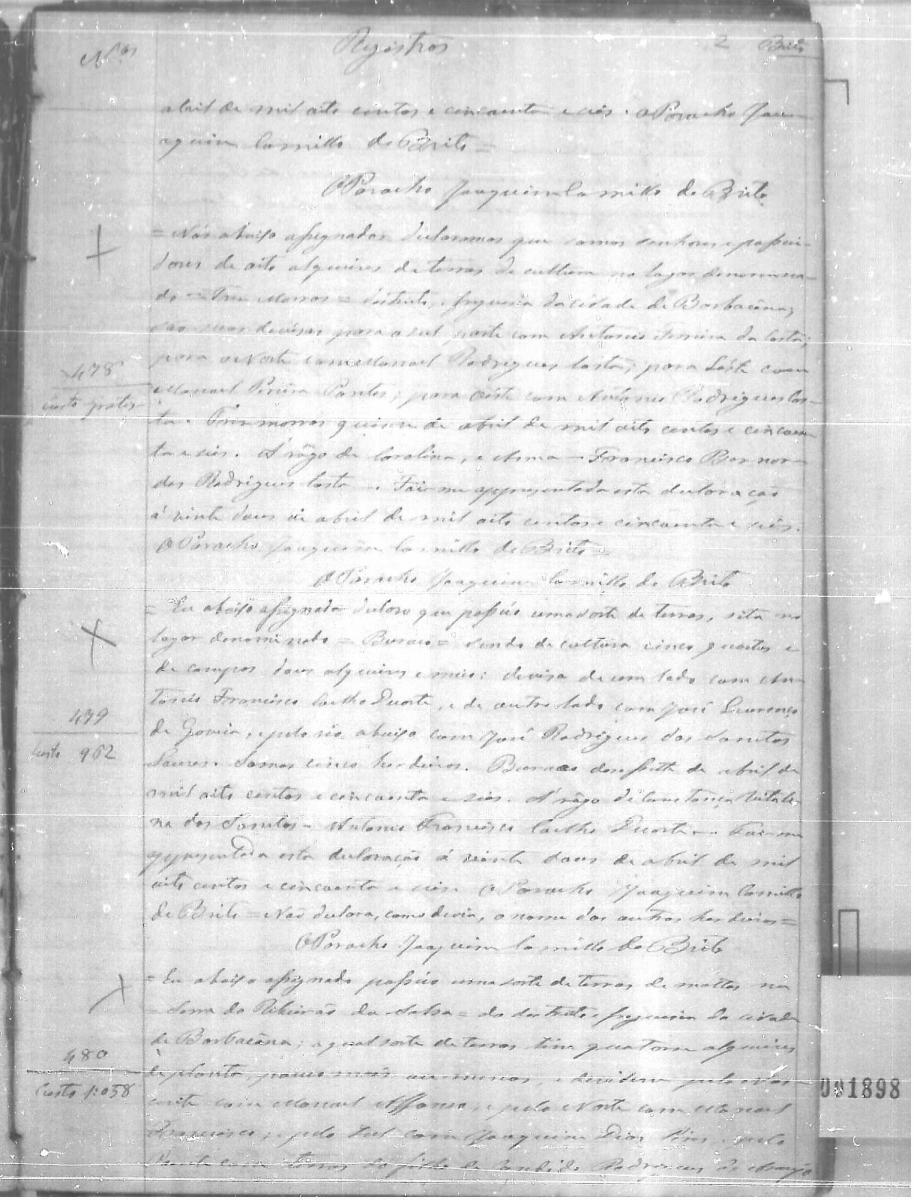 Nos Registros 2 Brito
abril de mil oito centos e cincoenta e seis. O Parocho Joa-
quim Camillo de Brito =
O Parocho Joaquim Camillo de Brito
= Nós abaixo assignados declaramos que somos senhores e possui-
dores de oito alqueires de terras de cultura no lugar denomina-
do = Tres Morros = districto, freguesia da Cidade de Barbacena,
são suas devisas para o sul parte com Antonio Ferreira da Costa;
para o Norte com Manoel Rodrigues Costa; para Léste com
478
Manoel Pereira Pontes; para Oéste com Antonio Rodrigues Cos-
custo gratis
ta. Tres morros quinse de abril de mil oito centos e cincoen-
ta e seis. A rôgo de Carolina, e Anna = Francisco Bernar-
des Rodrigues Costa =. Foi-me appresentada esta declaração
á vinte dous de abril de mil oito centos e cincoenta e seis.
O Parocho Joaquim Camillo de Brito =
O Parocho Joaquim Camillo de Brito
= Eu abaixo assignada declaro que possúo uma sorte de terras, sita no
lugar denominado = Buraco = sendo de cultura cinco quartas e
de campos dous alqueires e meio: devisa de um lado com An-
tonio Francisco Coelho Duarte, e de outro lado com José Lourenço
479
de Gouvia, e pelo rio abaixo com José Rodrigues dos Santos
custo 962
Somos cinco herdeiros. Buraco de abril de
mil oito centos e cincoenta e seis. A rôgo de
na dos Santos = Antonio Francisco Coelho Duarte =. Foi-me
appresentada esta declaração á vinte dous de abril de mil
oito centos e cincoenta e seis O Parocho Joaquim Camillo
de Brito = Não declara, como devia, o nome dos outros herdeiros =
O Parocho Joaquim Camillo de Brito
= Eu abaixo assignado possúo uma sorte de terras de mattos na
= Serra do Ribeirão da = do districto, freguesia da cidade
de Barbacena; a qual sorte de terras tem quatorse alqueires
480
de planta, pouco mais ou menos, e devidem pelo Nas-
custo 1:058
cente com Manoel Affonso, e pelo Norte com Manoel
Francisco, e pelo Sul com Joaquim Dias, pelo
com terras do de Candido Rodrigues de Araujo
001898